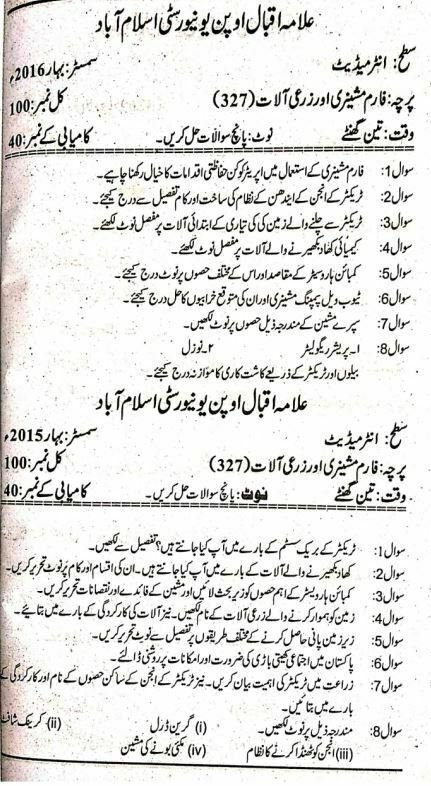 علامہ اقبال اوپن یونیورسٹی اسلام آباد
سطح: انٹرمیڈیٹ سمسٹر: بہار 2016ء
پرچہ: فارم مشینری اور زرعی آلات (327) کل نمبر: 100
وقت: تین گھنٹے نوٹ: پانچ سوالات حل کریں۔ کامیابی کے نمبر: 40
سوال 1: فارم مشینری کے استعمال میں اپریٹر کو کن حفاظتی اقدامات کا خیال رکھنا چاہیے۔
سوال 2: ٹریکٹر کے انجن کے ایندھن کے نظام کی ساخت اور کام تفصیل سے درج کیجئے۔
سوال 3: ٹریکٹر سے چلنے والے زمین کی کی تیاری کے ابتدائی آلات پر مفصل نوٹ لکھئے۔
سوال 4: کیمیائی کھاد بکھیرنے والے آلات پر مفصل نوٹ لکھئے۔
سوال 5: کمبائن ہارویسٹر کے مقاصد اور اس کے مختلف حصوں پر نوٹ درج کیجئے۔
سوال 6: ٹیوب ویل پمپنگ مشینری اور ان کی متوقع خرابیوں کا حل درج کیجئے۔
سوال 7: سپرے مشین کے مندرجہ ذیل حصوں پر نوٹ لکھیں۔
سوال 8: ۱۔ پریشر ریگولیٹر ۲۔ نوزل
بیلوں اور ٹریکٹر کے ذریعے کاشت کاری کا موازنہ درج کیجئے۔
علامہ اقبال اوپن یونیورسٹی اسلام آباد
سطح: انٹرمیڈیٹ سمسٹر: بہار 2015ء
پرچہ: فارم مشینری اور زرعی آلات (327) کل نمبر: 100
وقت: تین گھنٹے نوٹ: پانچ سوالات حل کریں۔ کامیابی کے نمبر: 40
سوال 1: ٹریکٹر کے بریک سسٹم کے بارے میں آپ کیا جانتے ہیں؟ تفصیل سے لکھیں۔
سوال 2: کھاد بکھیرنے والے آلات کے بارے میں آپ کیا جانتے ہیں۔ ان کی اقسام اور کام پر نوٹ تحریر کریں۔
سوال 3: کمبائن ہارویسٹر کے اہم حصوں کو زیر بحث لائیں اور مشین کے فائدے اور نقصانات تحریر کریں۔
سوال 4: زمین کو ہموار کرنے والے زرعی آلات کے نام لکھیں۔ نیز آلات کی کارکردگی کے بارے میں بتائیے۔
سوال 5: زیر زمین پانی حاصل کرنے کے مختلف طریقوں پر تفصیل سے نوٹ تحریر کریں۔
سوال 6: پاکستان میں اجتماعی کھیتی باڑی کی ضرورت اور امکانات پر روشنی ڈالئے۔
سوال 7: زراعت میں ٹریکٹر کی اہمیت بیان کریں۔ نیز ٹریکٹر کے انجن کے ساکن حصوں کے نام اور کارکردگی کے
بارے میں بتائیں۔
سوال 8: مندرجہ ذیل پر نوٹ لکھیں۔ (i) گرین ڈرل (ii) کرینک شافٹ
(iii) انجن کو ٹھنڈا کرنے کا نظام (iv) مکئی بونے کی مشین